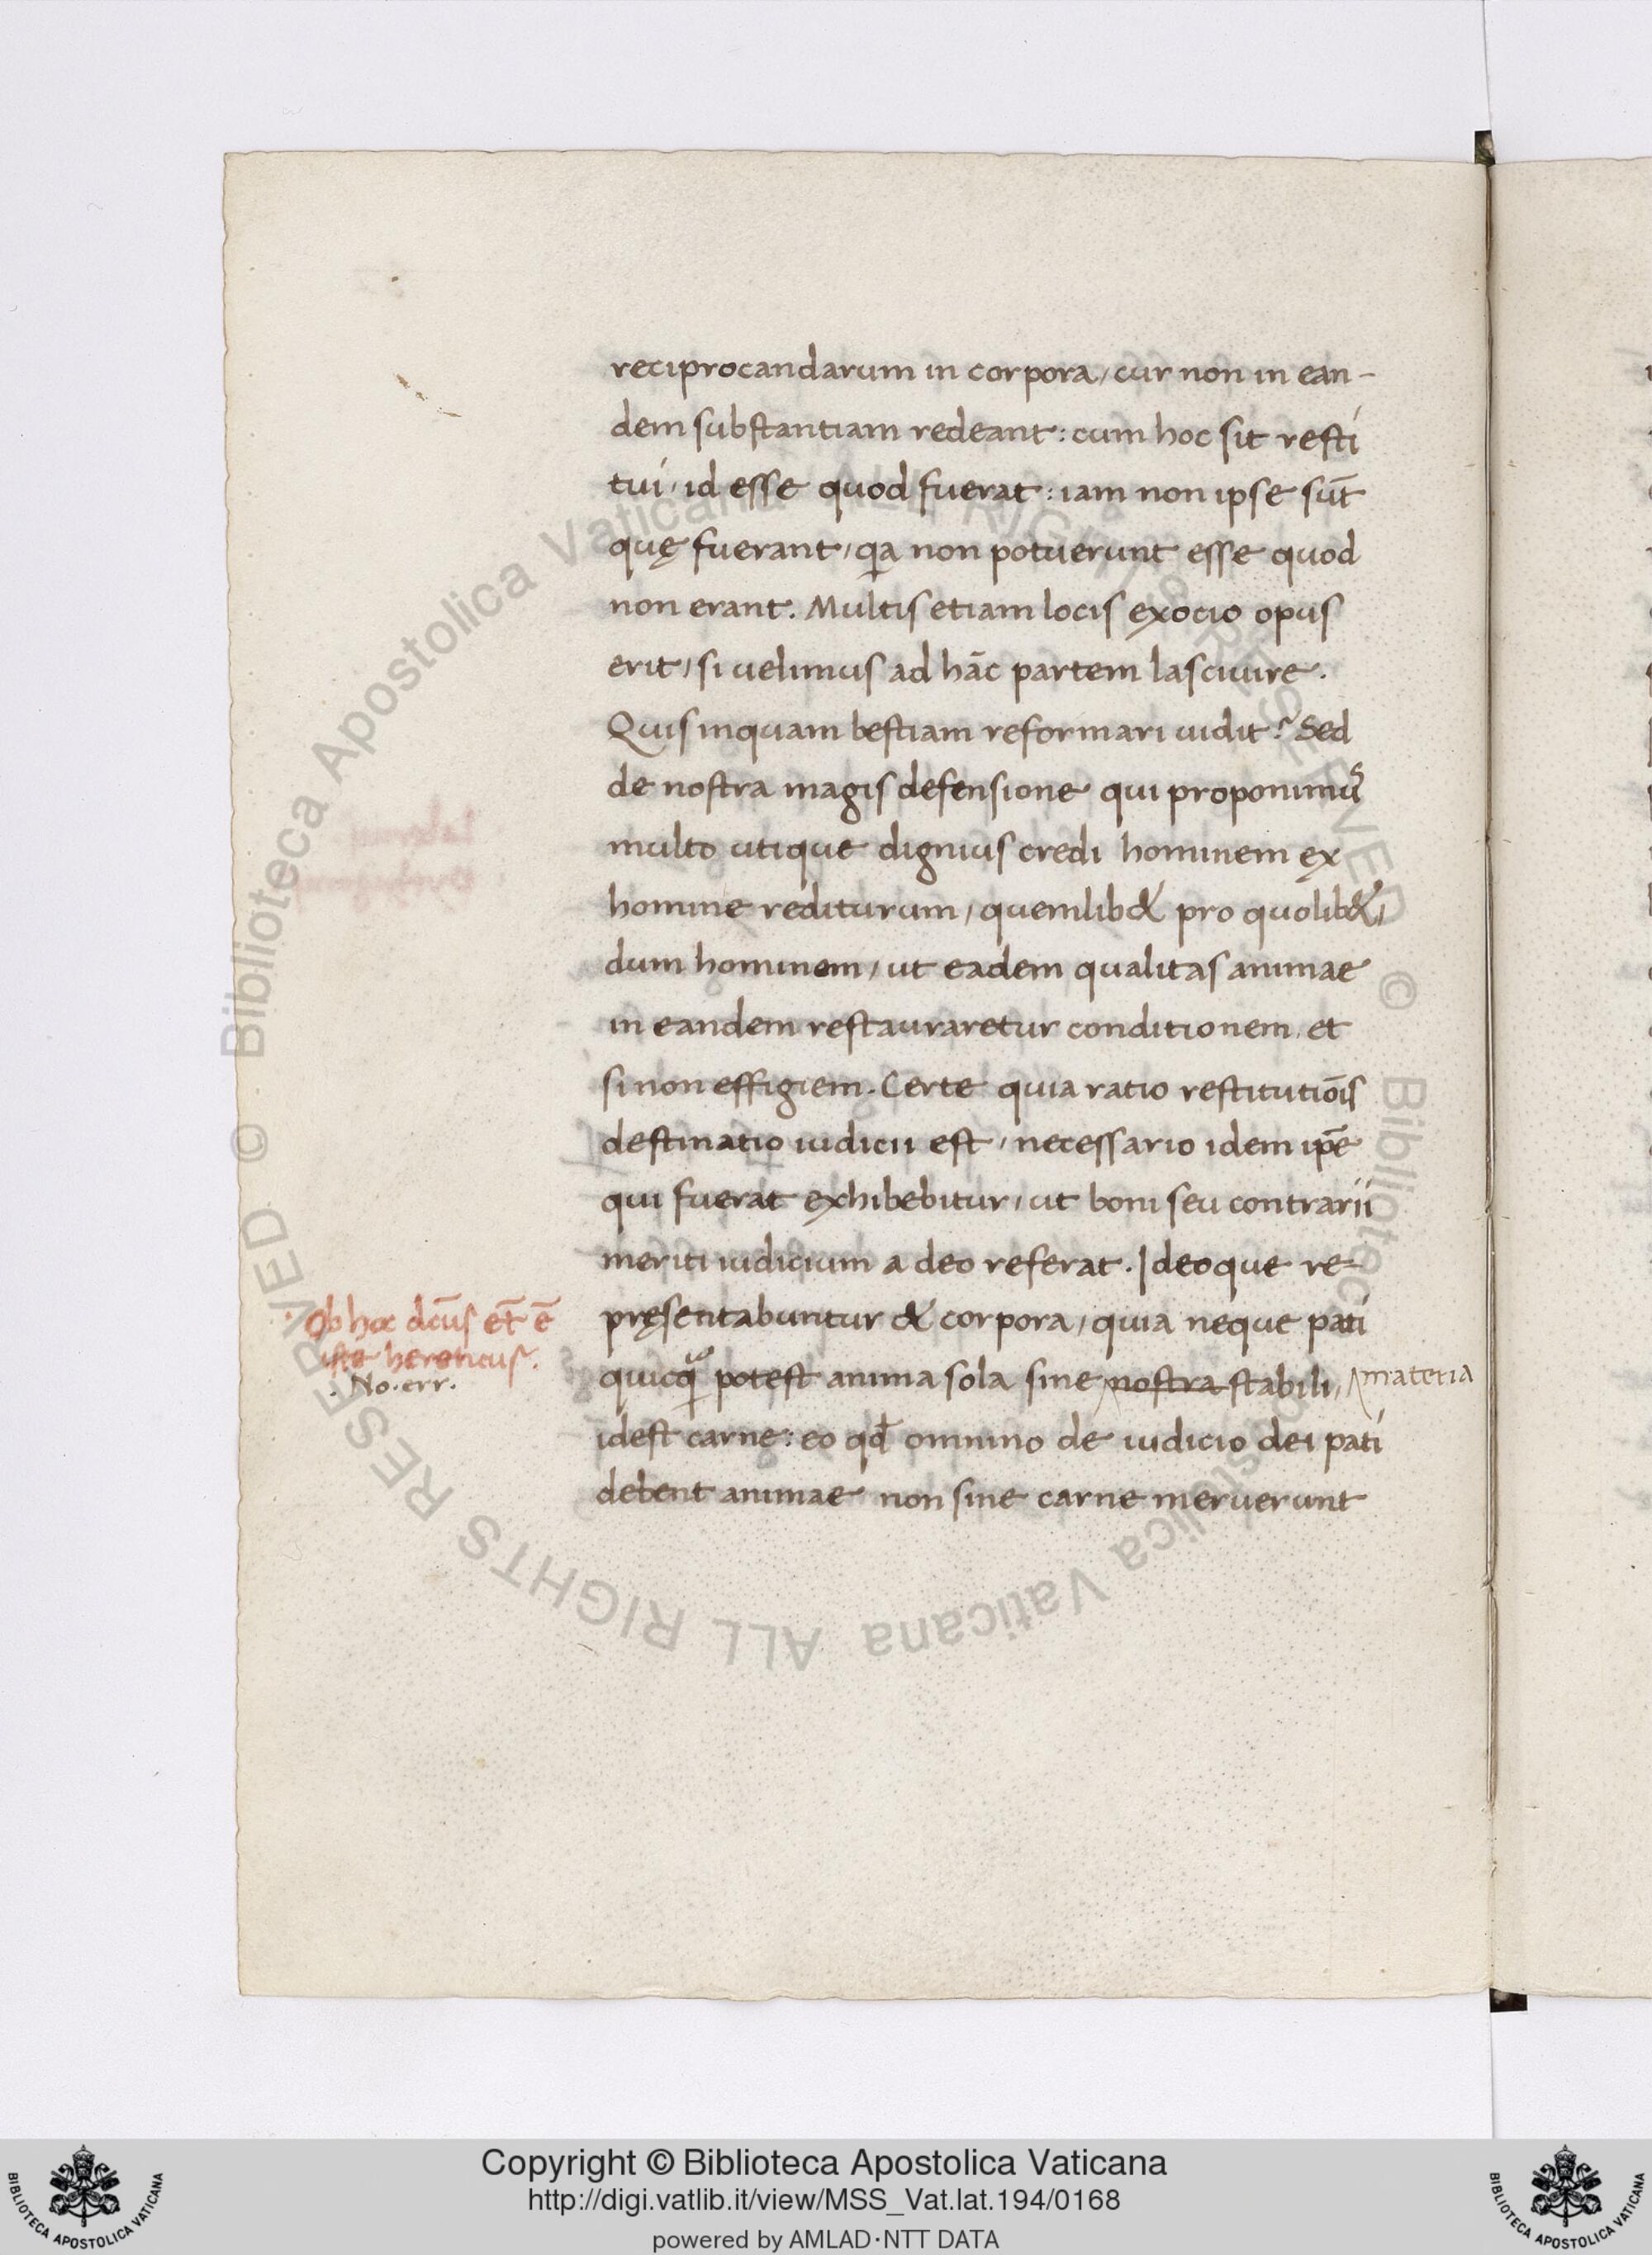 reciprocandarum in corpora, cur non in ean-
dem substantiam redeant: cum hoc sit resti
tui, id esse quod fuerat: iam non ipse sūt
quę fuerant, qa non potuerunt esse quod
non erant. Multis etiam locis exocio opus
erit, si uelimus ad hāc partem lasciuire.
Quis inquam bestiam reformari uidit? Sed
de nostra magis defensione qui proponimus
multo utique dignius credi hominem ex
homine rediturum, quemlib& pro quolib&,
dum hominem, ut eadem qualitas animae
in eandem restauraretur conditionem, et
si non effigiem. Certe quia ratio restitutiōis
destinatio iudicii est, necessario idem ip̄e
qui fuerat exhibebitur, ut boni seu contrarii
meriti iudicium a deo referat. Ideoque re-
pręsentabuntur & corpora, quia neque pati
quicq potest anima sola sine nostra stabili, materia
idest carne: eo qđ omnino de iudicio dei pati
debent animae non sine carne meruerunt
Ob hoc dc̄us et̄ ē
iste hereticus.
No. err.
© Biblioteca Apostolica Vaticana ALL RIGHTS RESERVED
© Biblioteca Apostolica Vaticana ALL RIGHTS RESERVED
Copyright © Biblioteca Apostolica Vaticana
http://digi.vatlib.it/view/MSS_Vat.lat.194/0168
powered by AMLAD·NTT DATA
BIBLIOTECA APOSTOLICA VATICANA
BIBLIOTECA APOSTOLICA VATICANA